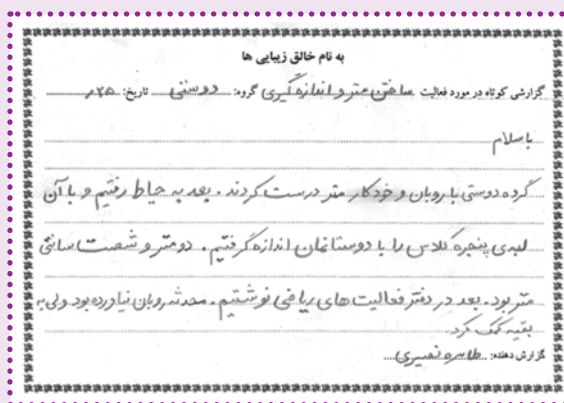 به نام خالق زیبایی ها
گزارشی کوتاه در مورد فعالیت ساختن متر و اندازه گیری گروه: دوستی تاریخ:
با سلام
گروه دوستی با روبان و خودکار متر درست کردند. بعد به حیاط رفتیم و با آن
لبه‌ی پنجره کلاس را با دوستانمان اندازه گرفتیم. دو متر و شصت سانتی
متر بود. بعد در دفتر فعالیت های ریاضی نوشتیم. محدثه روبان نیاورده بود ولی به
بقیه کمک کرد.
گزارش دهنده: طاهره نصیری